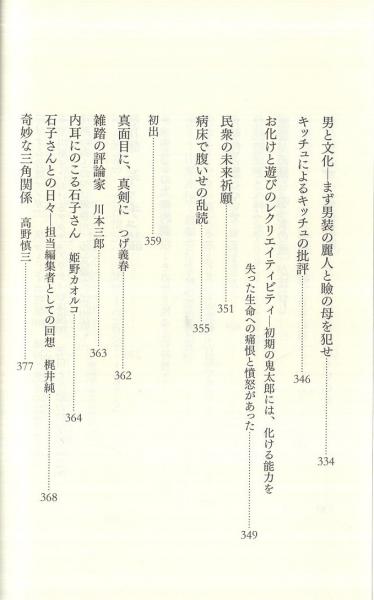 男と文化―まず男装の麗人と瞼の母を犯せ……334
キッチュによるキッチュの批評……346
お化けと遊びのレクリエイティビティ―初期の鬼太郎には、化ける能力を
失った生命への痛恨と憤怒があった……349
民衆の未来祈願……351
病床で腹いせの乱読……355
初出……359
真面目に、真剣に　つげ義春……362
雑踏の評論家　川本三郎……363
内耳にのこる石子さん　姫野カオルコ……364
石子さんとの日々―担当編集者としての回想　梶井純……368
奇妙な三角関係　高野慎三……377